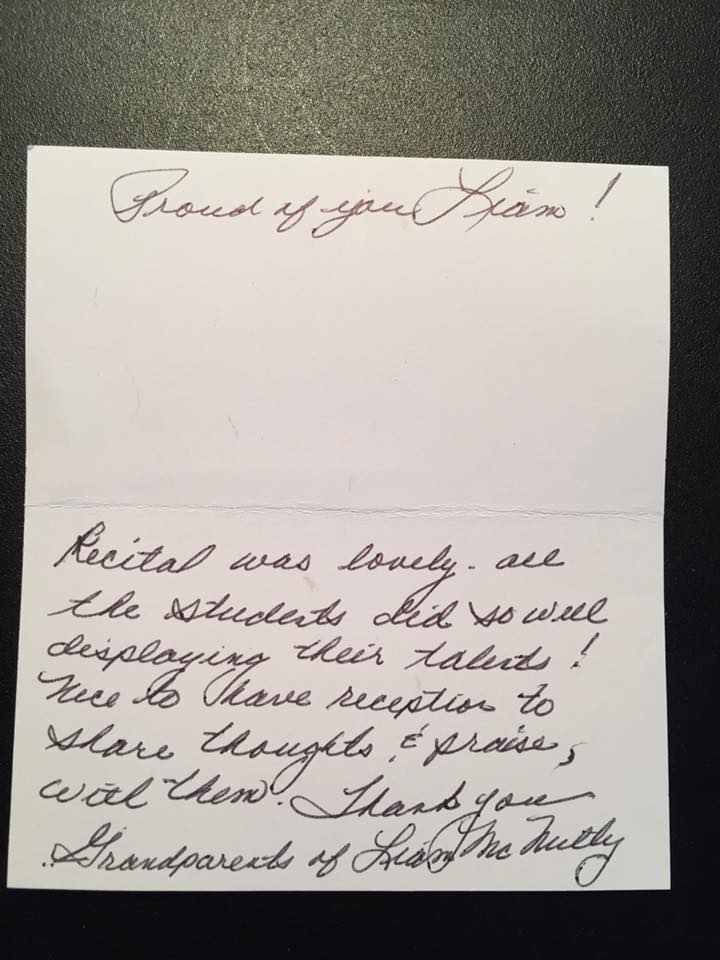 Proud of you Liam!
Recital was lovely - all
the students did so well
displaying their talents!
Nice to have reception to
share thoughts & praise,
with them. Thank you
Grandparents of Liam McNulty